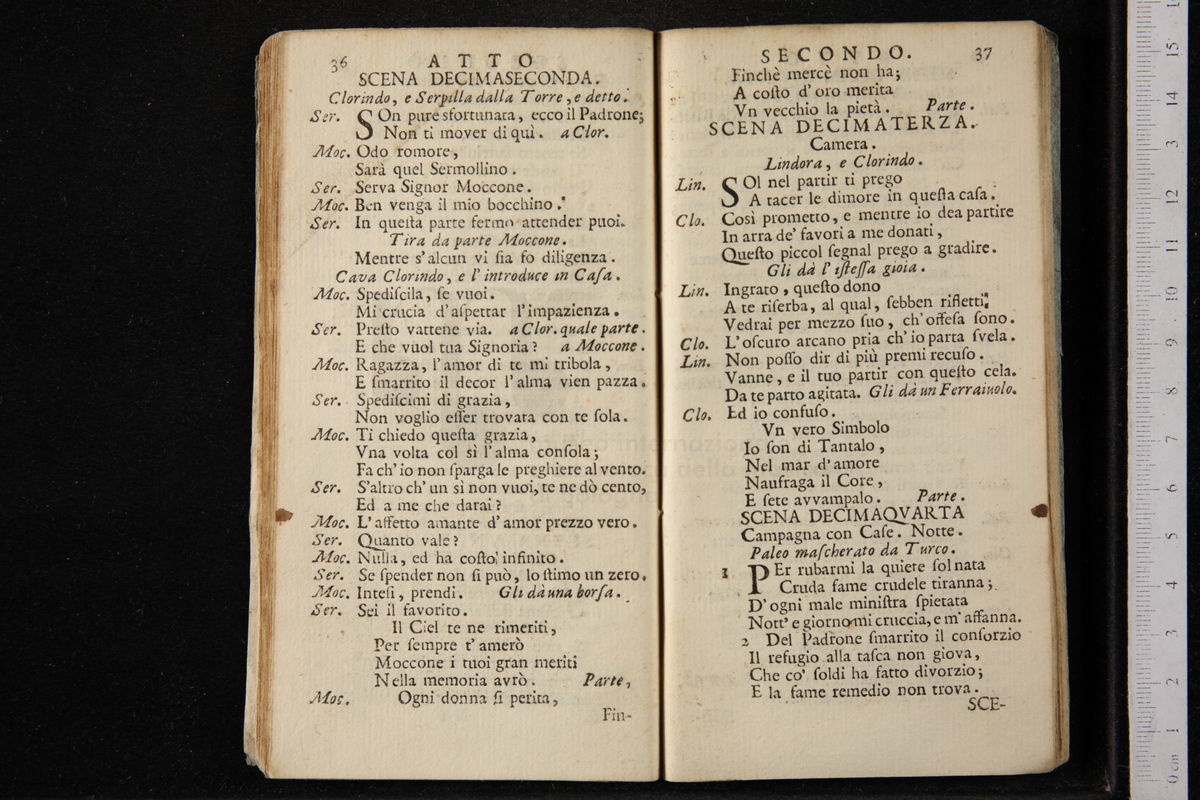 36 ATTO
SCENA DECIMASECONDA.
Clorindo, e Serpilla dalla Torre, e detto.
Ser. SOn pure sfortunata, ecco il Padrone;
Non ti mover di quì. a Clor.
Moc. Odo romore,
Sarà quel Sermollino.
Ser. Serva Signor Moccone.
Moc. Ben venga il mio bocchino.
Ser. In queſta parte fermo attender puoi.
Tira da parte Moccone.
Mentre s'alcun vi ſia fo diligenza.
Cava Clorindo, e l'introduce in Caſa.
Moc. Spediſcila, ſe vuoi.
Mi crucia d'aſpettar l'impazienza.
Ser. Preſto vattene via. a Clor. quale parte.
E che vuol tua Signoria? a Moccone.
Moc. Ragazza, l'amor di te mi tribola,
E ſmarrito il decor l'alma vien pazza.
Ser. Spediſcimi di grazia,
Non voglio eſſer trovata con te ſola.
Moc. Ti chiedo queſta grazia,
Vna volta col sì l'alma conſola;
Fa ch'io non ſparga le preghiere al vento.
Ser. S'altro ch'un sì non vuoi, te ne dò cento,
Ed a me che darai?
Moc. L'affetto amante d'amor prezzo vero.
Ser. Quanto vale?
Moc. Nulla, ed ha coſto infinito.
Ser. Se ſpender non ſi può, lo ſtimo un zero.
Moc. Inteſi, prendi. Gli dà una borſa.
Ser. Sei il favorito.
Il Ciel te ne rimeriti,
Per ſempre t'amerò
Moccone i tuoi gran meriti
Nella memoria avrò. Parte,
Moc. Ogni donna ſi perita,
Fin-
SECONDO. 37
Finchè mercè non ha;
A coſto d'oro merita
Vn vecchio la pietà. Parte.
SCENA DECIMATERZA.
Camera.
Lindora, e Clorindo.
Lin. SOl nel partir ti prego
A tacer le dimore in queſta caſa.
Clo. Così prometto, e mentre io dea partire
In arra de' favori a me donati,
Queſto piccol ſegnal prego a gradire.
Gli dà l'iſteſſa gioia.
Lin. Ingrato, queſto dono
A te riſerba, al qual, ſebben rifletti;
Vedrai per mezzo ſuo, ch'offeſa ſono.
Clo. L'oſcuro arcano pria ch'io parta ſvela.
Lin. Non poſſo dir di più premi recuſo.
Vanne, e il tuo partir con queſto cela.
Da te parto agitata. Gli dà un Ferraiuolo.
Clo. Ed io confuſo.
Vn vero Simbolo
Io ſon di Tantalo,
Nel mar d'amore
Naufraga il Core,
E ſete avvampalo. Parte.
SCENA DECIMAQVARTA
Campagna con Caſe. Notte.
Paleo maſcherato da Turco.
1 PEr rubarmi la quiete ſol nata
Cruda fame crudele tiranna;
D'ogni male miniſtra ſpietata
Nott'e giorno mi cruccia, e m'affanna.
2 Del Padrone ſmarrito il conſorzio
Il refugio alla taſca non giova,
Che co' ſoldi ha fatto divorzio;
E la fame remedio non trova.
SCE-